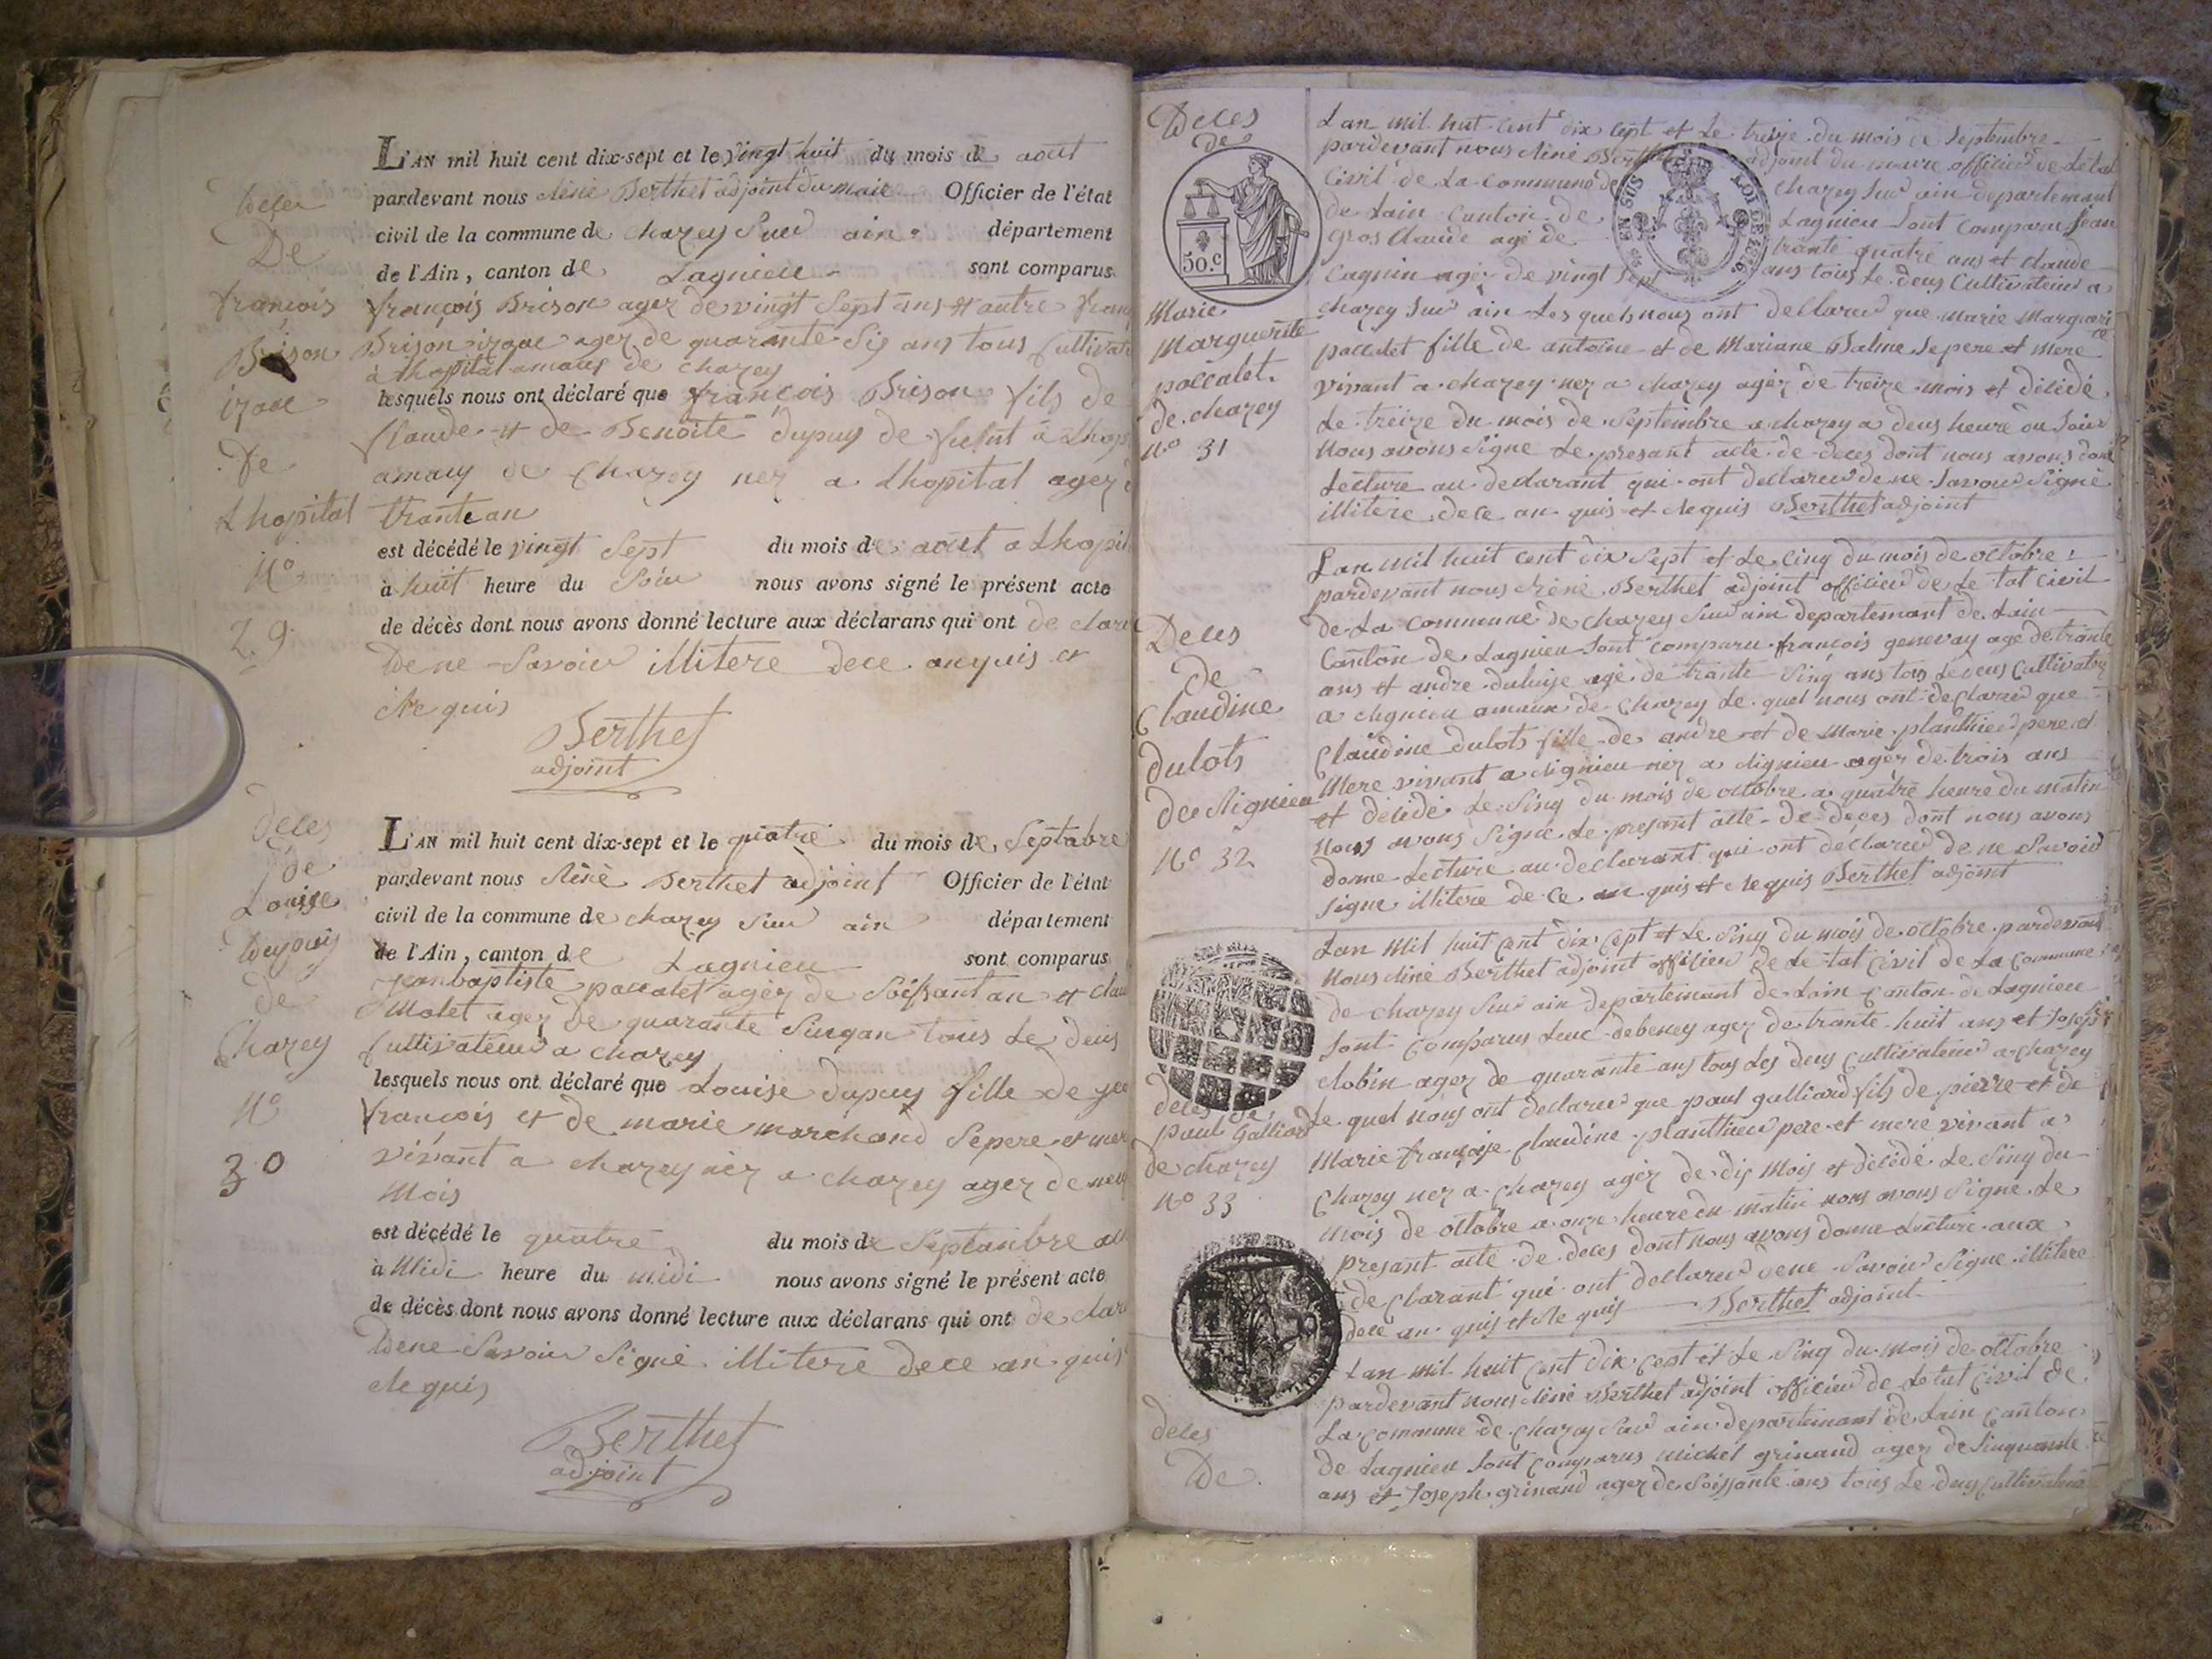 Deces
De
françois
Brison
izaac
De
Lhopital
N°
29
L'AN mil huit cent dix-sept et le vingt huit du mois de aout
pardevant nous Berthet adjoint du maire Officier de l'état
civil de la commune de chazey Sur ain département
de l'Ain, canton de Lagnieu sont comparus
françois Brison agez de vingt Sept ans et autre
Brison izaac agez de quarante Six ans tous
à Lhopital amaux de chazey
lesquels nous ont déclaré que françois Brison fils de
Claude et de Benoite dupuy de a
amaux de Chazey nez a Lhopital agez
trante an
est décédé le vingt Sept du mois de aout a
à huit heure du Soir nous avons signé le présent acte
de décès dont nous avons donné lecture aux déclarans qui ont de
Dene Savoir illitere dece anquis et
Requis
Berthet
adjoint
Deces
De
Louise
Dupuis
de
Chazey
N°
30
L'AN mil huit cent dix-sept et le quatre du mois de Septabre
pardevant nous Berthet adjoint Officier de l'état
civil de la commune de chazey Sur ain département
de l'Ain, canton de Lagnieu sont comparus
Jean baptiste paccalet agez de Soissant an et
Molet agez de quarante Sinq an tous Le deus
Cultivateur a chazey
lesquels nous ont déclaré que Louise dupuy fille de
françois et de marie marchand Sepere et
vivant a chazey nez a chazey agez de
Mois
est décédé le quatre du mois de Septanbre
à Midi heure du midi nous avons signé le présent acte
de décès dont nous avons donné lecture aux déclarans qui ont de
Dene Savoir Signé illitere dece an quis
Requis
Berthet
adjoint
Deces
De
50.c
Marie
Marguerite
paccalet
de chazey
N° 31
Lan mil huit cent dix sept et Le treize du mois de Septembre
pardevant nous adjoint du maire officier de Letat
Civil de La Commune de chazey Sur ain departemant
de Lain Canton de Lagnieu Sont Comparu Jean
Gros Claude agé de trante quatre ans et Claude
Cagnin agéz de vingt Sept ans tous Le deus Cultivateur a
EN SUS
LOI DE 1816
chazey Sur ain Lesquels nous ont declaré que marie Marguerite
paccalet fille de antoine et de Mariane Balme Sepere et mere
vivant a chazey nez a chazey agéz de treize mois et décédé
Le treize du mois de Septembre a chazey a deus heure du Soir
Nous avons Signe Le presant acte de deces dont nous avons donne
Lecture au declarant qui ont declaré de ne Savoir Signé
illitere dece an quis et Requis Berthet adjoint
Deces
De
Claudine
dulots
de Rignieu
N° 32
Lan mil huit cent dix Sept et Le Cinq du mois de octobre
pardevant nous Berthet adjoint officier de Le tat civil
de La Commune de chazey Sur ain departemant de Lain
Canton de Lagnieu Sont Comparu françois genevay agé de trante
ans et andre agé de trante Sinq ans tous Le deus Cultivateur
a Rignieu amaux de Chazey Le quel nous ont declaré que
Claudine dulots fille de andre et de Marie planthier pere et
Mere vivant a Rignieu nez a Rignieu agéz de trois ans
et décédé Le Sinq du mois de octobre a quatre heure du matin
Nous avons Signe Le presant acte de deces dont nous avons
donne Lecture au declarant qui ont declaré de ne Savoir
Signe illitere de ce an quis et Requis Berthet adjoint
deces de
paul Galliard
de chazey
N° 33
Lan Mil huit cent dix sept et Le Sinq du mois de octobre pardevant
Nous Berthet adjoint officier de Le tat Civil de La Commune
de chazey Sur ain departemant de Lain Canton de Lagnieu
Sont Comparus Luc debeney agez de trante huit ans et Joseph
Robin agez de quarante ans tous Les deus Cultivateur a chazey
Le quel nous ont declaré que paul galliard fils de pierre et de
Marie françoise Claudine planthier pere et mere vivant a
Chazey nez a Chazey agéz de dix Mois et décédé Le Sinq du
mois de octobre a onze heure du matin nous avons Signé Le
presant acte de deces dont nous avons donne Lecture aux
declarant qui ont declaré dene Savoir Signe illitere
dece an quis et Re quis Berthet adjoint
deces
De
Lan mil huit Cent dix cept et Le Sinq du mois de octobre
pardevant nous Berthet adjoint officier de Letat Civil de
La Commune de Chazey Sur ain departemant de Lain Canton
de Lagnieu Sont Comparus Michel grinand agez de Sinquante
ans et Joseph grinand agez de Soissante ans tous Le deus Cultivateur